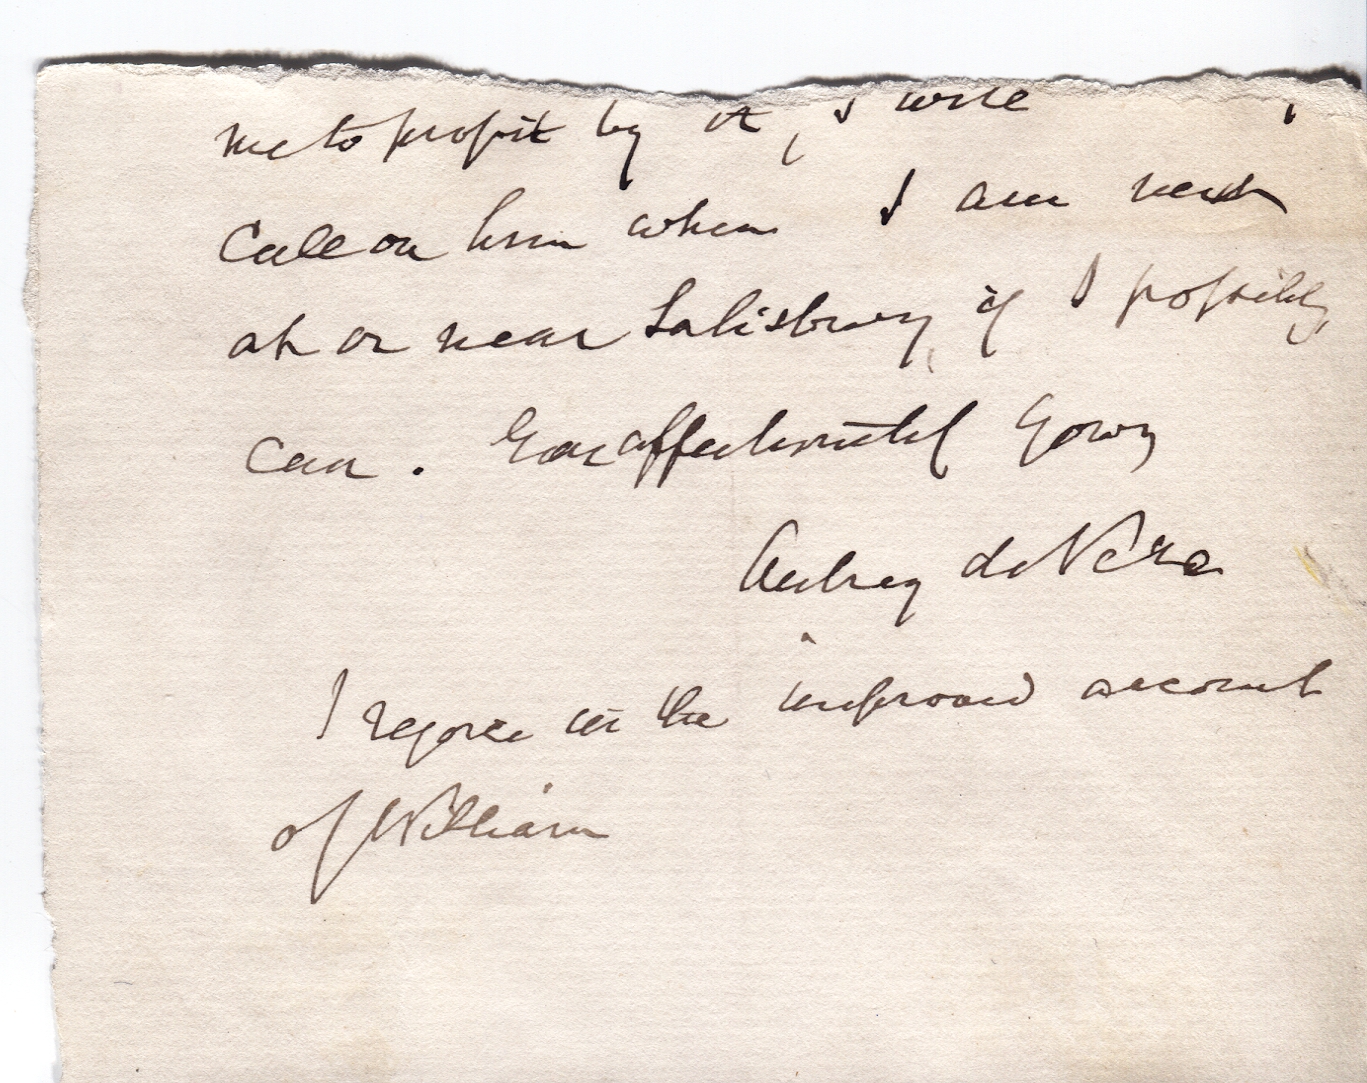 me to profit by it, I will
call on him when I am next
at or near Salisbury, if I possibly
can. affectionately yours
Aubrey de Vere
I rejoice in the improved account
of William